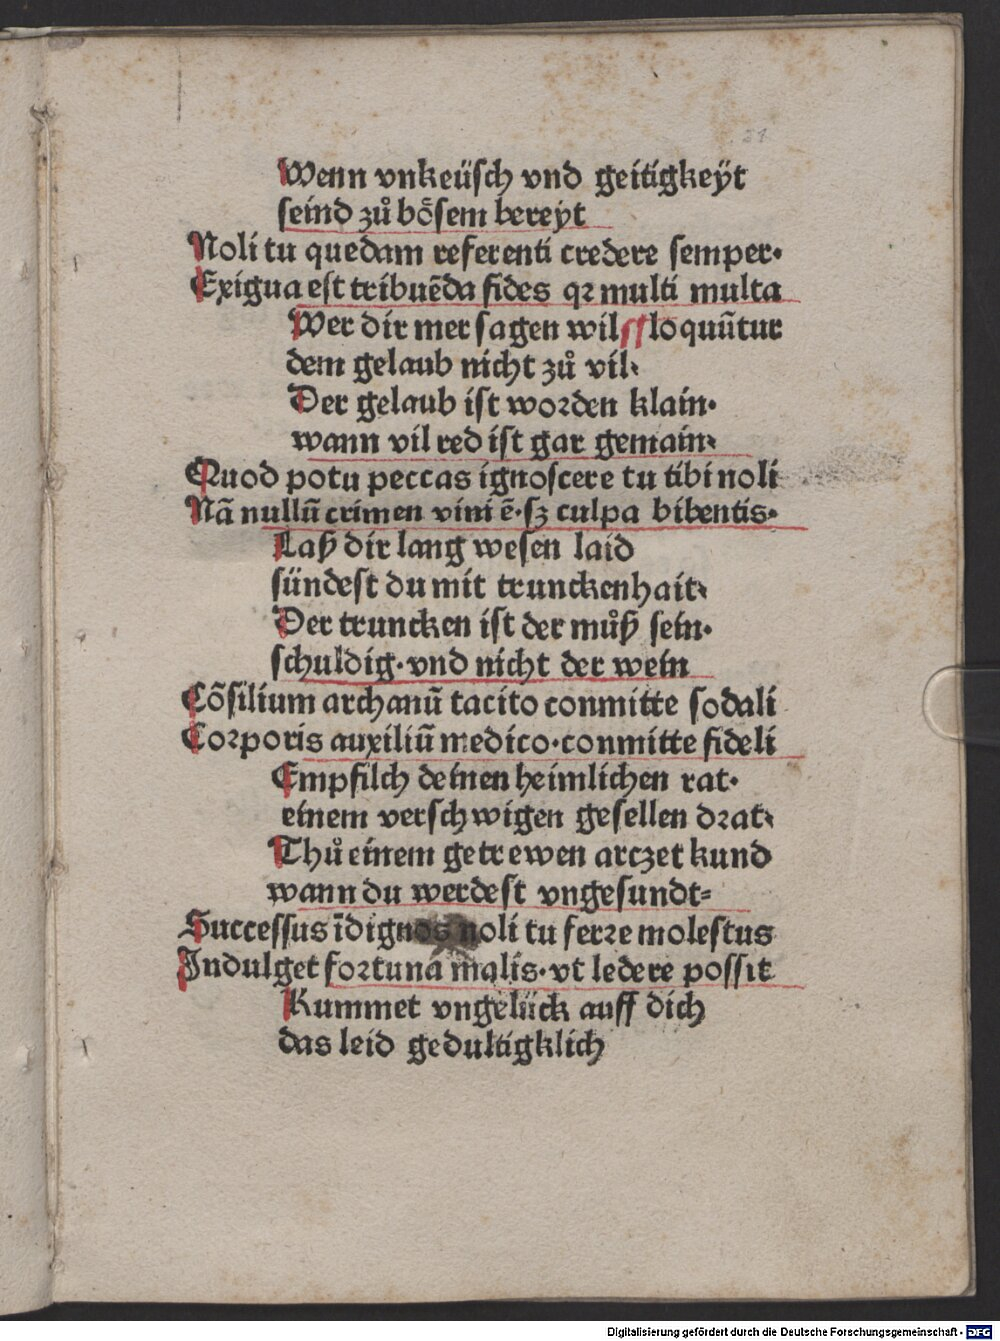 21
Wenn vnkeüsch vnd geitigkeÿt
seind zů bo᷑sem bereyt
Noli tu quedam referenti credere semper.
Exigua est tribuēda fides qꝛ multi multa
Wer dir mer sagen wil loquūtur
dem gelaub nicht zů vil.
Der gelaub ist woꝛden klain.
wann vil red ist gar gemain.
Quod potu peccas ignoscere tu tibi noli
Nā nullū crimen vini ē.sꝫ culpa bibentis.
Laß dir lang wesen laid
sündest du mit trunckenhait.
Der truncken ist der můß sein.
schuldig.vnd nicht der wein
Cōsilium archanū tacito conmitte sodali
Coꝛporis auxiliū medico.conmitte fideli
Empfilch deinen heimlichen rat.
einem verschwigen gesellen dꝛat.
Thů einem getrewen arczet kund
wann du werdest vngesundt⸗
Successus īdignos noli tu ferꝛe molestus
Indulget foꝛtuna malis.vt ledere possit
Kummet vngelück auff dich
das leid gedultigklich
Digitalisierung gefördert durch die Deutsche Forschungsgemeinschaft - DFG